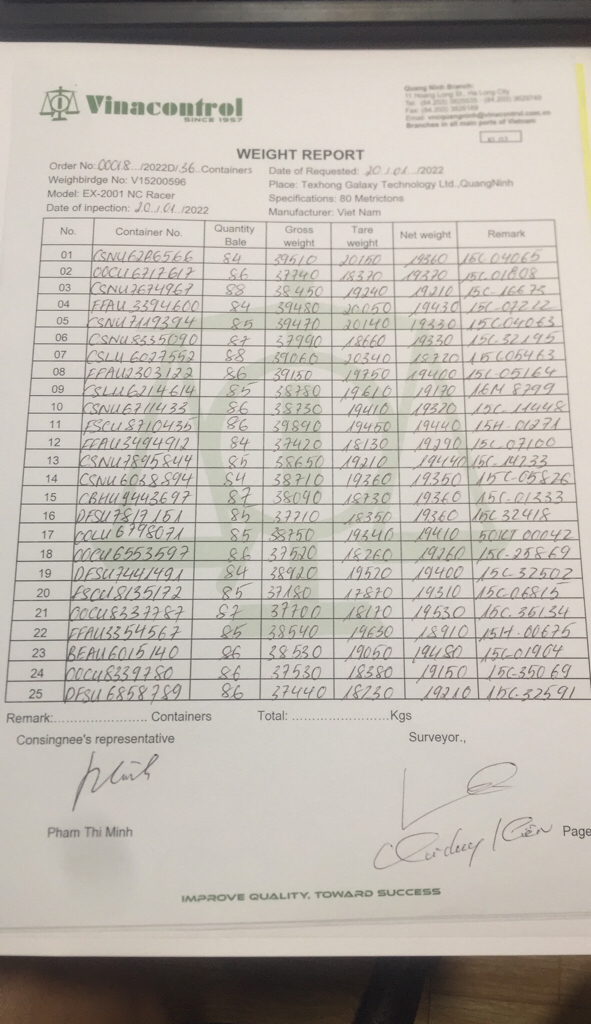 Vinacontrol
SINCE 1957
Quang Ninh Branch:
11 Hoang Long St., Ha Long City
Branches in all main ports of Vietnam
WEIGHT REPORT
Order No: 00018 /2022D/36 Containers
Date of Requested: 20/01/2022
Weighbirdge No: V15200596
Place: Texhong Galaxy Technology Ltd.,QuangNinh
Model: EX-2001 NC Racer
Specifications: 80 Metrictons
Date of inpection: 20/01/2022
Manufacturer: Viet Nam
No. Container No. Quantity Bale Gross weight Tare weight Net weight Remark
01 CSNU6286566 84 39510 20150 19360 15C 04065
02 OOCU6717617 86 37740 18370 19370 15C-01808
03 CSNU2674967 88 38450 19240 19210 15C-16673
04 FFAU 3394600 84 39480 20050 19430 15C-07222
05 CSNU7119394 85 39470 20140 19330 15C04063
06 CSNU8335090 87 37990 18660 19330 15C-32195
07 CSLU 6027552 88 39060 20340 18720 15C06463
08 FFAU2303122 86 39150 19750 19400 15C-05164
09 CSLU6214614 85 38780 19610 19170 16M 8799
10 CSNU6711433 86 38730 19410 19320 15C 11448
11 FSCU8710435 86 39890 19450 19440 15H-01271
12 FFAU3494912 84 37420 18130 19290 15C-07100
13 CSNU7895844 85 38650 19210 19440 15C-14233
14 CSNU6038894 84 38710 19360 19350 15C-05826
15 CBHU9443697 87 38090 18730 19360 15C-01333
16 DFSU7817151 85 37710 18350 19360 15C 32418
17 CCLU6798071 85 38750 19340 19410 50ICT 00042
18 OOCU6553597 86 37520 18260 19260 15C-25869
19 DFSU7441491 84 38920 19520 19400 15C-32502
20 FSCU8135172 85 37180 17870 19310 15C06815
21 OOCU8337787 87 37700 18170 19530 15C.36134
22 FFAU3354567 85 38540 19630 18910 15H-00675
23 BEAU6015140 86 38530 19050 19480 15C-01904
24 OOCU8339780 86 37530 18380 19150 15C-35069
25 DFSU6858789 86 37440 18230 19210 15C-32591
Remark:........................ Containers Total: ........................Kgs
Consingnee's representative Surveyor.,
Pham Thi Minh
Page
IMPROVE QUALITY, TOWARD SUCCESS